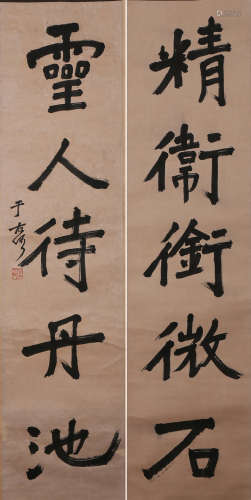 精衞銜微石
靈人待丹池
于右任